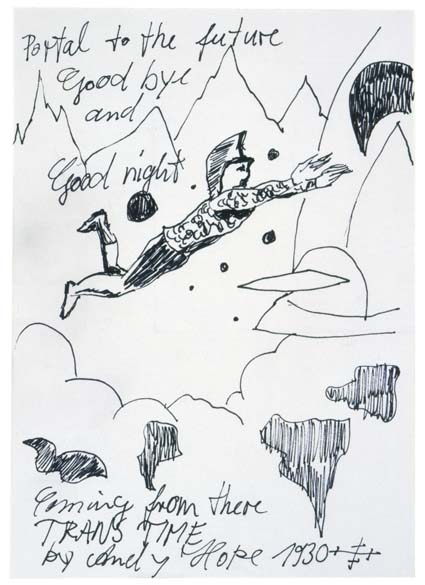 Portal to the future
Good bye
and
Good night
Coming from there
TRANS TIME
by Andy Hope 1930